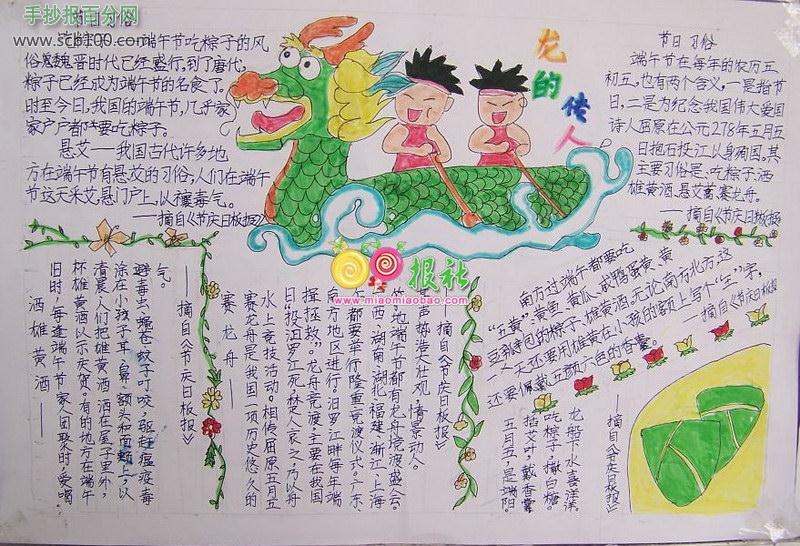 手抄报百分网
www.scb100.com
节日习俗
端午节吃粽子的风
俗魏晋时代已经盛行,到了唐代,
粽子已经成为端午节的名食了。
时至今日,我国的端午节,几乎家
家户户都要吃粽子。
悬艾——我国古代许多地
方在端午节有悬艾的习俗,人们在端午
节这天采艾,悬门户上,以禳毒气。
——摘自《节庆日板报》
龙的传人
节日习俗
端午节在每年的农历五
初五,也有两个含义,一是指节
日,二是为纪念我国伟大爱国
诗人屈原在公元278年五月五
日抱石投江以身殉国。其
主要习俗是:吃粽子,洒
雄黄酒,悬艾蒿,赛龙舟。
——摘自《节庆日板报》
报社
www.miaomiaobao.com
南方过端午都要吃
"五黄":黄鱼、黄瓜、咸鸭蛋黄、黄
豆瓣包的粽子、雄黄酒。无论南方北方,这
一天还要用雄黄在小孩的额上写个"王"字,
还要佩戴五颜六色的香囊。
——摘自《节庆日板报》
洒雄黄酒——
旧时,每逢端午节家人团聚时,爱喝
杯雄黄酒以示庆贺。有的地方在端午
清晨人们把雄黄酒洒在屋子里外,
涂在小孩子耳、鼻、额头和面颊上,以
避毒虫、蝎、苍蚊子叮咬,驱赶瘟疫毒
气。
——摘自《节庆日板报》
赛龙舟——
赛龙舟是我国一项历史悠久的
水上竞技活动。相传屈原五月五
日投汨罗江死,楚人哀之乃以舟
楫拯救。龙舟竞渡,主要在我国
南方地区进行,汨罗江畔每年端
午都要举行隆重竞渡仪式。广东、
西、湖南、湖北、福建、浙江、上海
等地端午节都有龙舟竞渡盛会。
其声势浩大壮观,情景动人。
——摘自《节庆日板报》
五月五,是端阳。
插艾叶,戴香囊。
吃粽子,撒白糖。
龙船下水喜洋洋。
——摘自《节庆日板报》